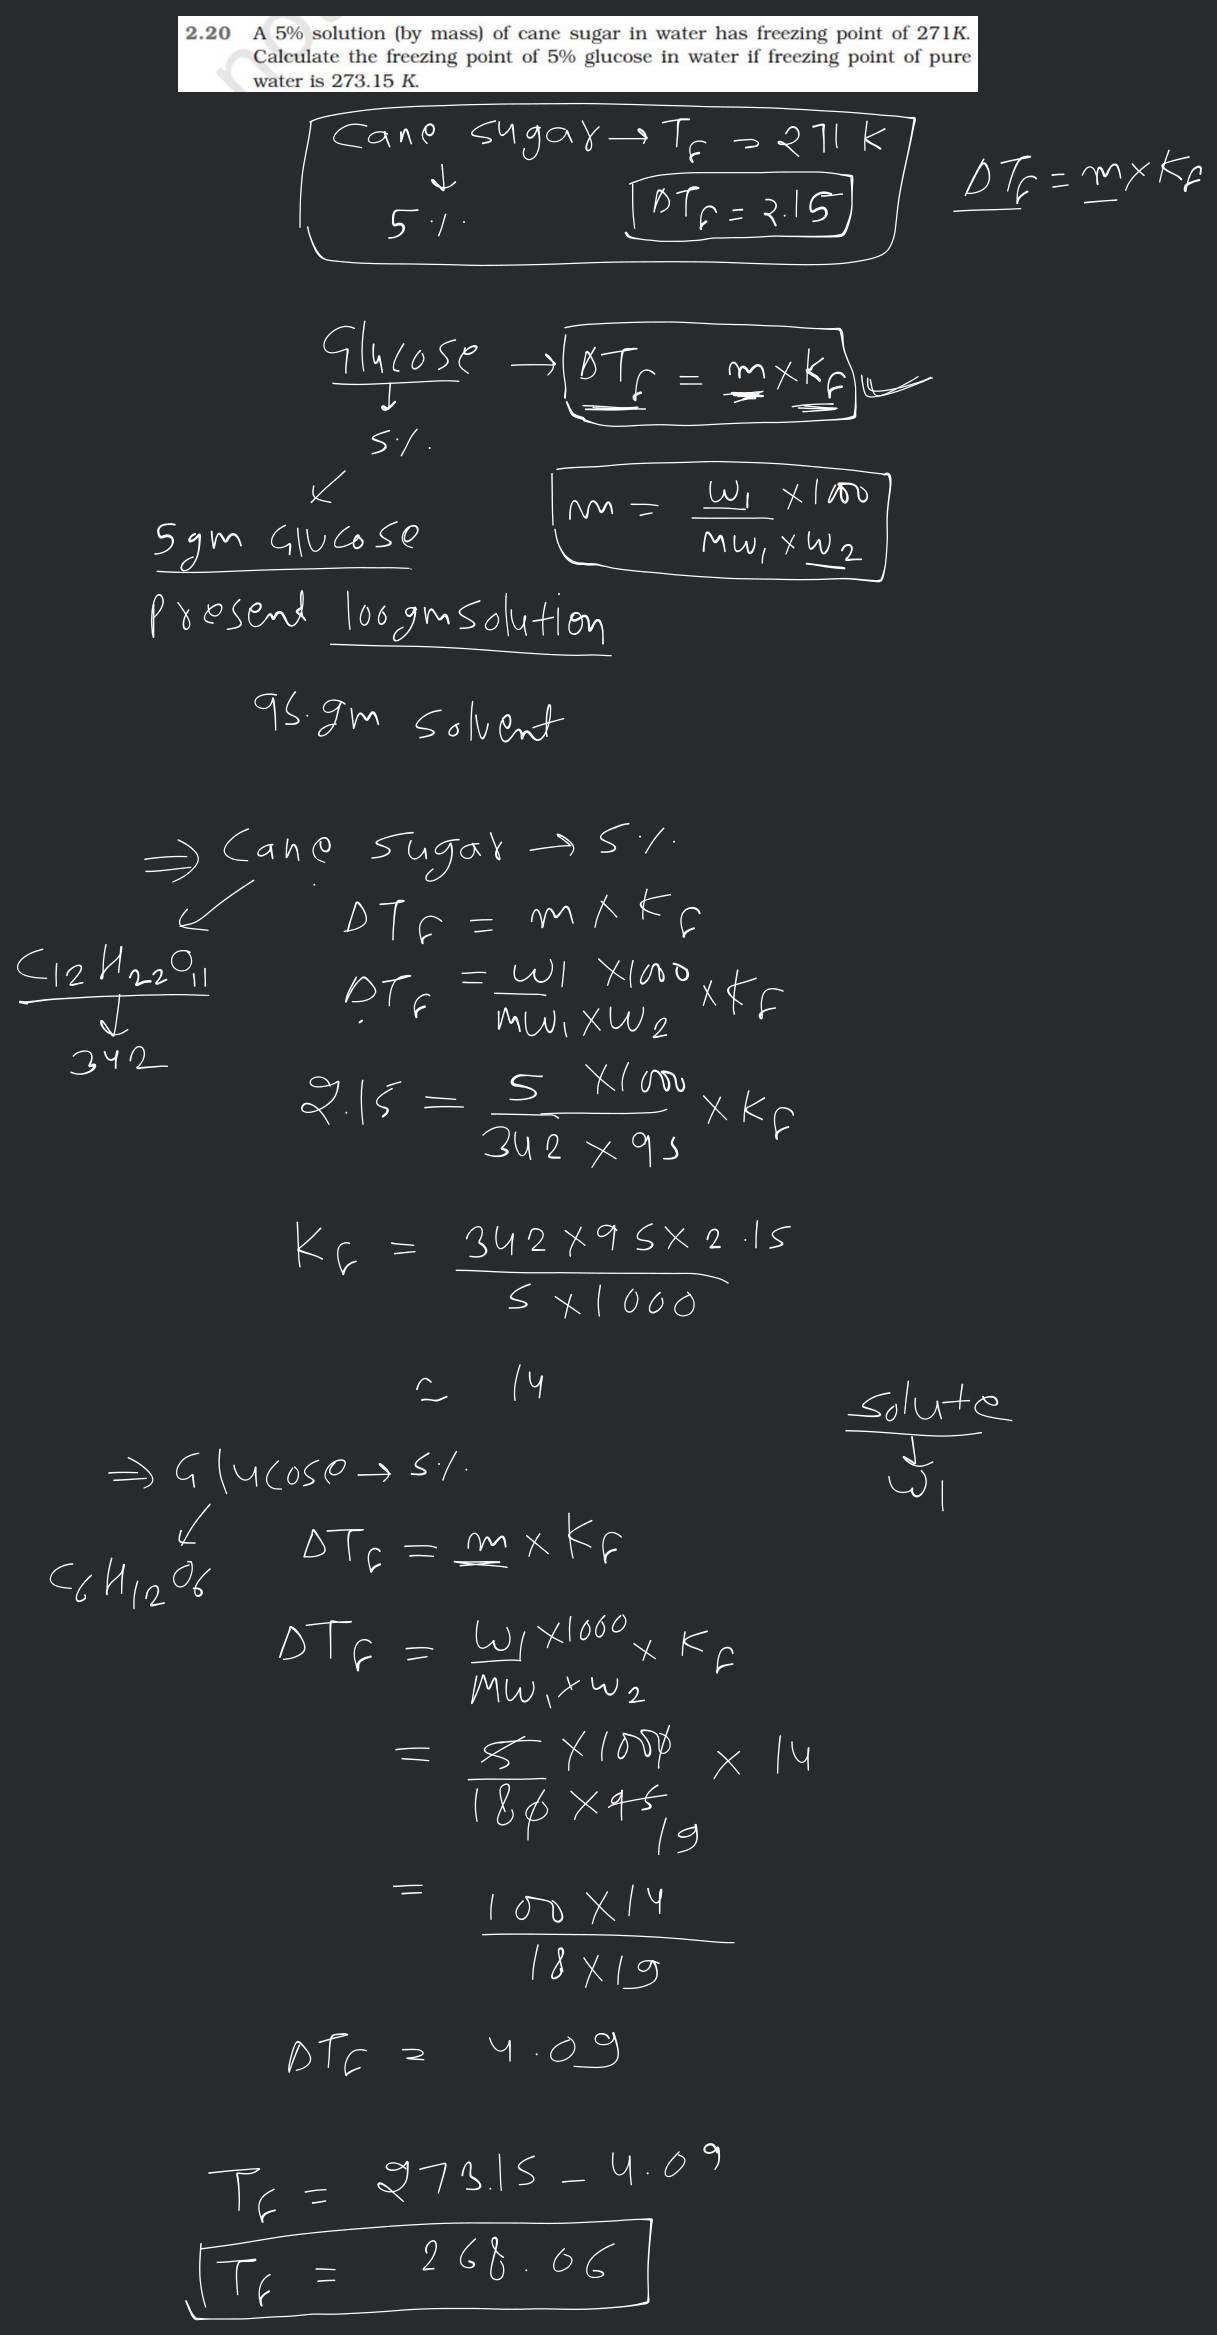 2.20 A 5% solution (by mass) of cane sugar in water has freezing point of 271K.
Calculate the freezing point of 5% glucose in water if freezing point of pure
water is 273.15 K.
Cane sugar → Tf = 271 K
↓
5%
ΔTf = 2.15
ΔTf = m × Kf
Glucose → ΔTf = m × Kf
↓
5%
m = W1 × 1000 / MW1 × W2
5gm Glucose
Present 100gm solution
95.gm solvent
⇒ Cane sugar → 5%
ΔTf = m × Kf
C12H22O11
↓
342
ΔTf = W1 × 1000 / MW1 × W2 × Kf
2.15 = 5 × 1000 / 342 × 95 × Kf
Kf = 342 × 95 × 2.15 / 5 × 1000
≃ 14
Solute
↓
W1
⇒ Glucose → 5%
C6H12O6
ΔTf = m × Kf
ΔTf = W1 × 1000 / MW1 × W2 × Kf
= 5 × 1000 / 180 × 95 × 14
19
= 100 × 14 / 18 × 19
ΔTf = 4.09
Tf = 273.15 - 4.09
Tf = 268.06